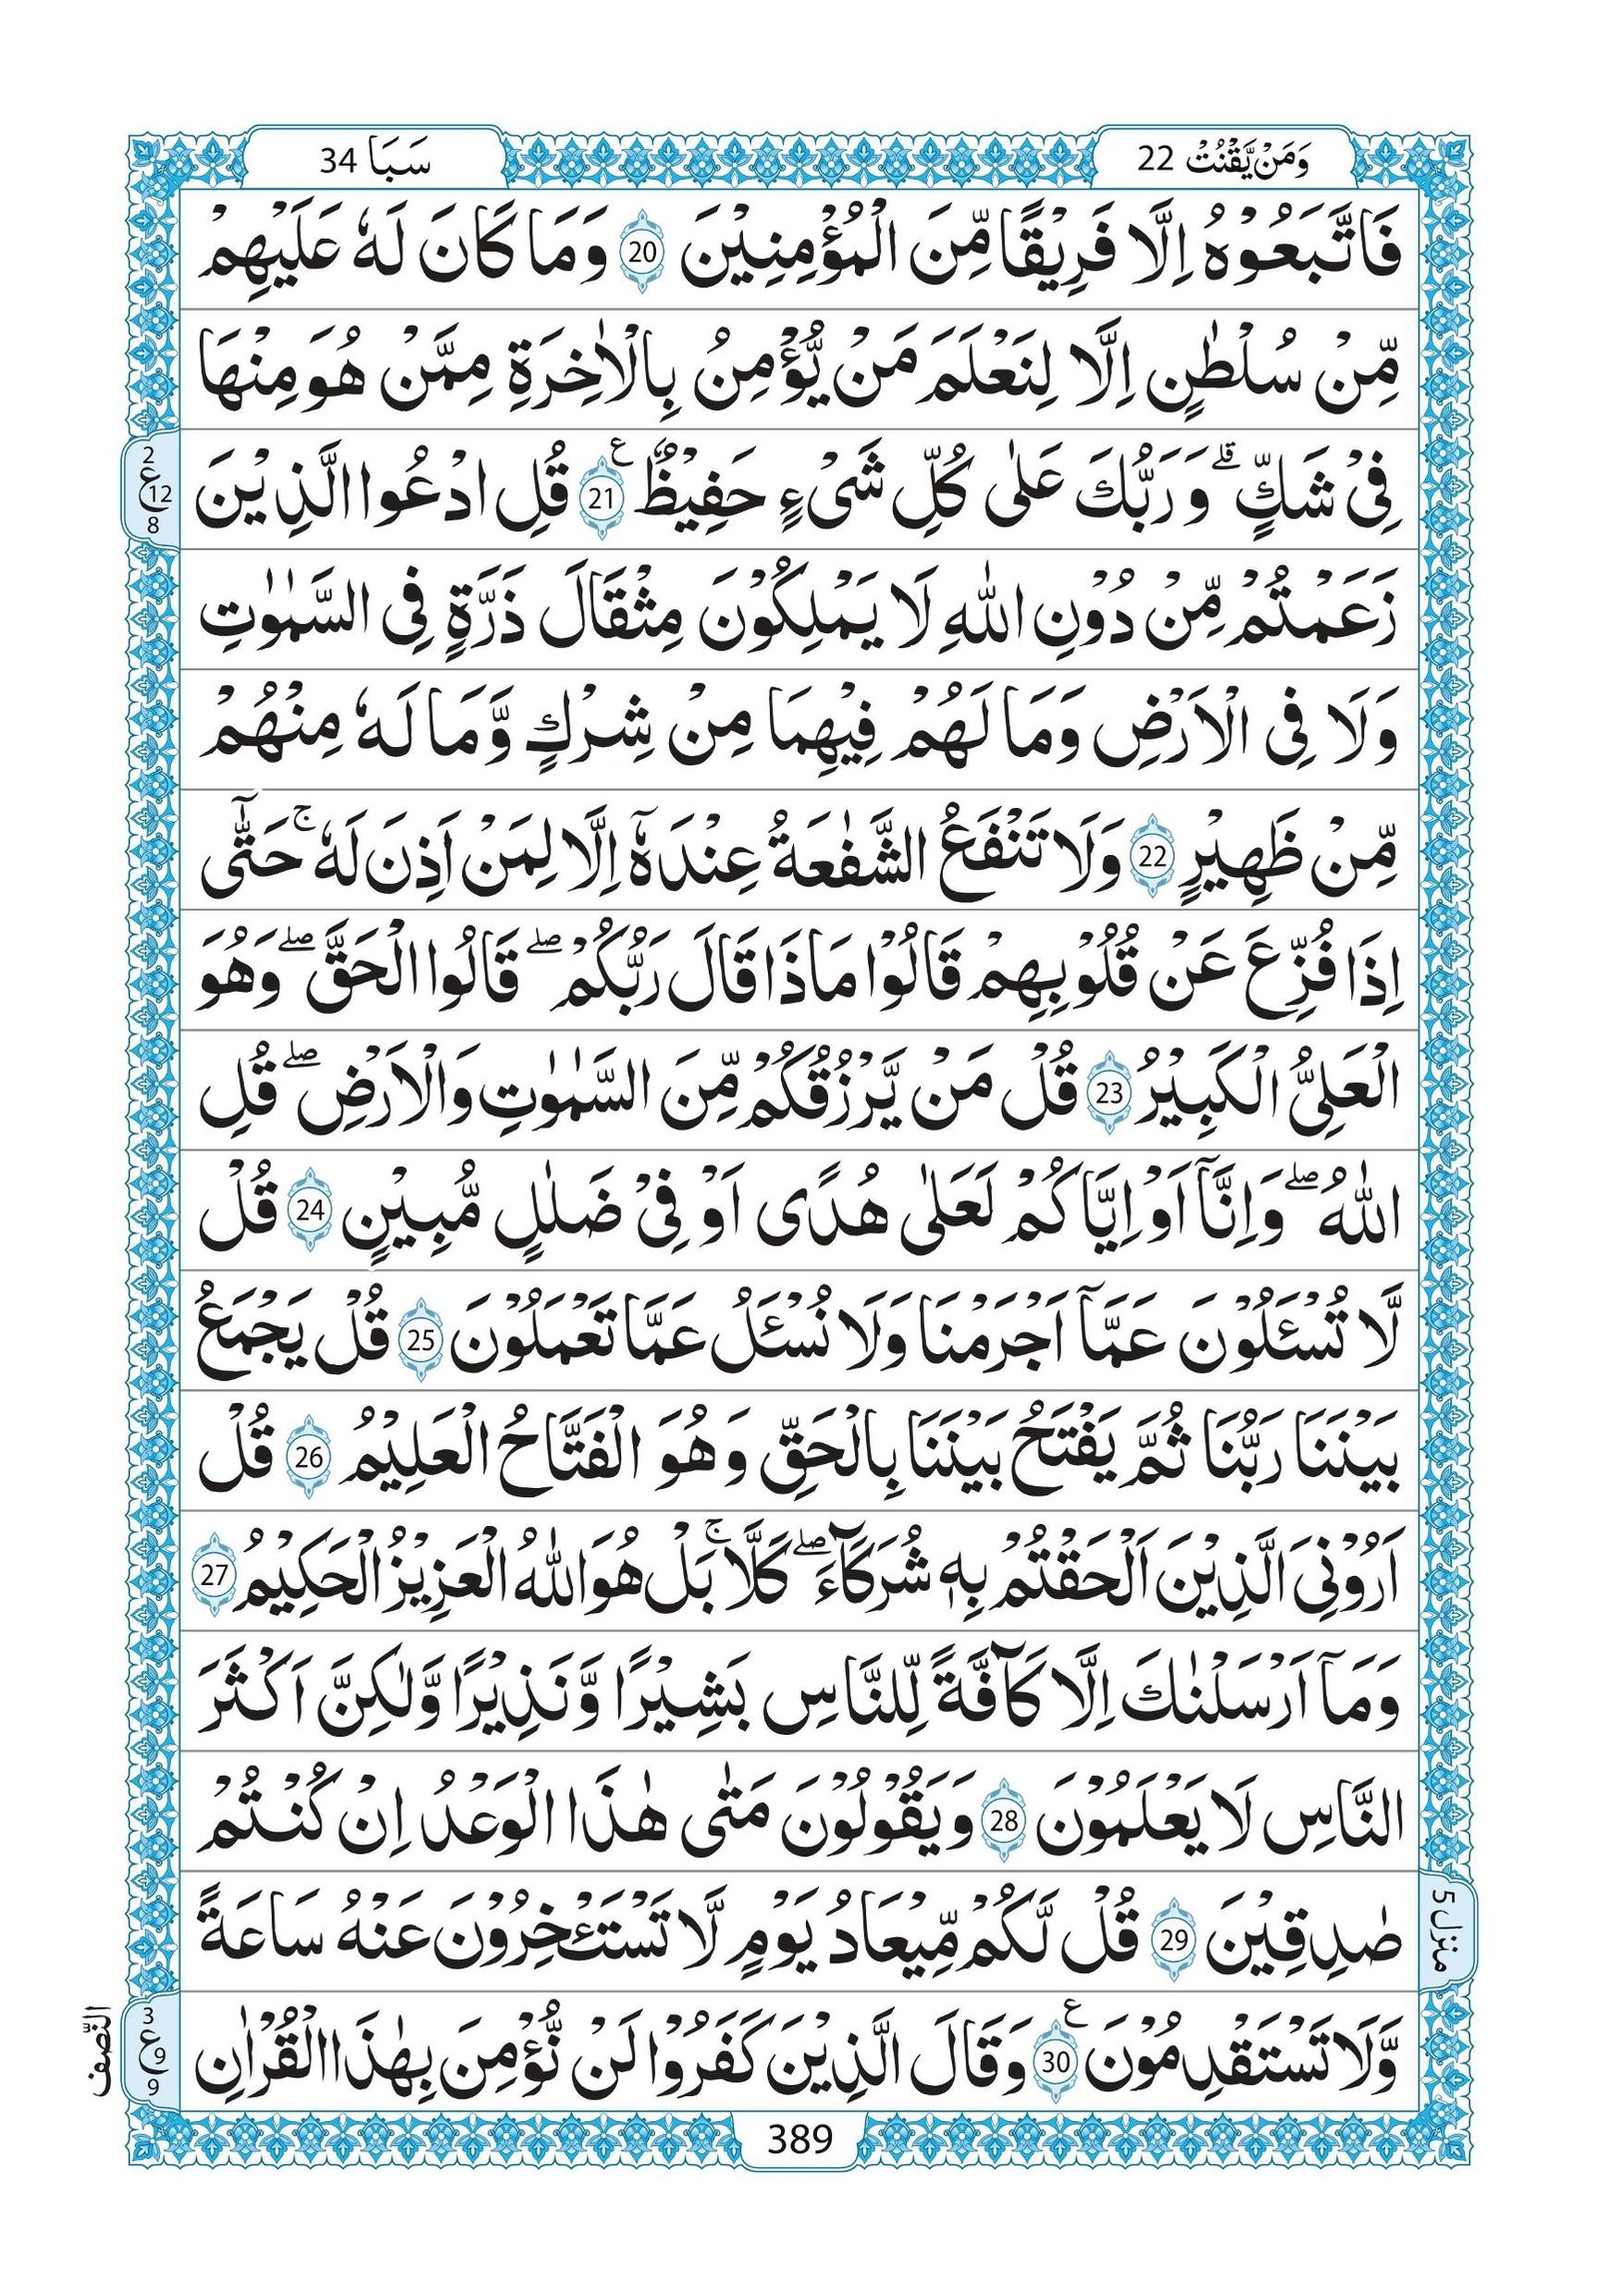 وَمَنْ يَّقْنُتْ 22
سَبَا 34
فَاتَّبَعُوْهُ اِلَّا فَرِيْقًا مِّنَ الْمُؤْمِنِيْنَ 20 وَمَا كَانَ لَهٗ عَلَيْهِمْ
مِّنْ سُلْطٰنٍ اِلَّا لِنَعْلَمَ مَنْ يُّؤْمِنُ بِالْاٰخِرَةِ مِمَّنْ هُوَ مِنْهَا
فِيْ شَكٍّ ۗ وَرَبُّكَ عَلٰى كُلِّ شَيْءٍ حَفِيْظٌ 21 ع قُلِ ادْعُوا الَّذِيْنَ
2 ع 12 8
زَعَمْتُمْ مِّنْ دُوْنِ اللّٰهِ لَا يَمْلِكُوْنَ مِثْقَالَ ذَرَّةٍ فِى السَّمٰوٰتِ
وَلَا فِى الْاَرْضِ وَمَا لَهُمْ فِيْهِمَا مِنْ شِرْكٍ وَّمَا لَهٗ مِنْهُمْ
مِّنْ ظَهِيْرٍ 22 وَلَا تَنْفَعُ الشَّفٰعَةُ عِنْدَهٗٓ اِلَّا لِمَنْ اَذِنَ لَهٗ ۚ حَتّٰٓى
اِذَا فُزِّعَ عَنْ قُلُوْبِهِمْ قَالُوْا مَاذَا قَالَ رَبُّكُمْ ۖ قَالُوا الْحَقَّ ۖ وَهُوَ
الْعَلِيُّ الْكَبِيْرُ 23 قُلْ مَنْ يَّرْزُقُكُمْ مِّنَ السَّمٰوٰتِ وَالْاَرْضِ ۖ قُلِ
اللّٰهُ ۖ وَاِنَّآ اَوْ اِيَّاكُمْ لَعَلٰى هُدًى اَوْ فِيْ ضَلٰلٍ مُّبِيْنٍ 24 قُلْ
لَّا تُسْئَلُوْنَ عَمَّآ اَجْرَمْنَا وَلَا نُسْئَلُ عَمَّا تَعْمَلُوْنَ 25 قُلْ يَجْمَعُ
بَيْنَنَا رَبُّنَا ثُمَّ يَفْتَحُ بَيْنَنَا بِالْحَقِّ وَهُوَ الْفَتَّاحُ الْعَلِيْمُ 26 قُلْ
اَرُوْنِيَ الَّذِيْنَ اَلْحَقْتُمْ بِهٖ شُرَكَآءَ ۖ كَلَّا ۚ بَلْ هُوَ اللّٰهُ الْعَزِيْزُ الْحَكِيْمُ 27
وَمَآ اَرْسَلْنٰكَ اِلَّا كَآفَّةً لِّلنَّاسِ بَشِيْرًا وَّنَذِيْرًا وَّلٰكِنَّ اَكْثَرَ
النَّاسِ لَا يَعْلَمُوْنَ 28 وَيَقُوْلُوْنَ مَتٰى هٰذَا الْوَعْدُ اِنْ كُنْتُمْ
صٰدِقِيْنَ 29 قُلْ لَّكُمْ مِّيْعَادُ يَوْمٍ لَّا تَسْتَئْخِرُوْنَ عَنْهُ سَاعَةً
منزل 5
وَّلَا تَسْتَقْدِمُوْنَ 30 ع وَقَالَ الَّذِيْنَ كَفَرُوْا لَنْ نُّؤْمِنَ بِهٰذَا الْقُرْاٰنِ
3 ع 9 9
النّصف
389